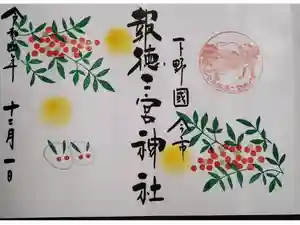 下野國今市
報徳二宮神社
令和四年
十二月一日